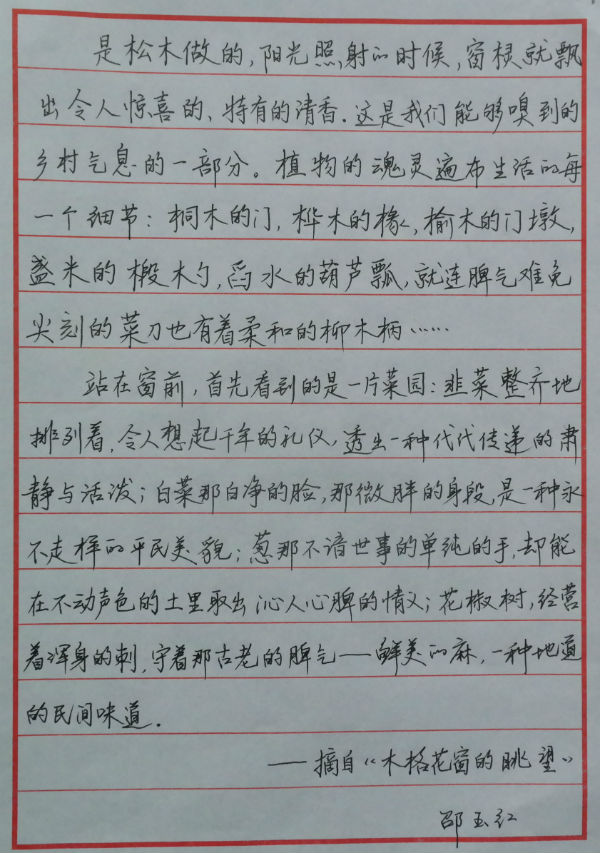 是松木做的,阳光照射的时候,窗棂就飘
出令人惊喜的、特有的清香.这是我们能够嗅到的
乡村气息的一部分。植物的魂灵遍布生活的每
一个细节:桐木的门,桦木的椽,榆木的门墩,
盏米的椴木勺,舀水的葫芦瓢,就连脾气难免
尖刻的菜刀也有着柔和的柳木柄……
站在窗前,首先看到的是一片菜园:韭菜整齐地
排列着,令人想起千年的礼仪,透出一种代代传递的肃
静与活泼;白菜那白净的脸,那微胖的身段,是一种永
不走样的平民美貌;葱那不谙世事的单纯的手,却能
在不动声色的土里取出沁人心脾的情义;花椒树,经营
着浑身的刺,守着那古老的脾气——鲜美的麻,一种地道
的民间味道.
——摘自《木格花窗的眺望》
邵玉红